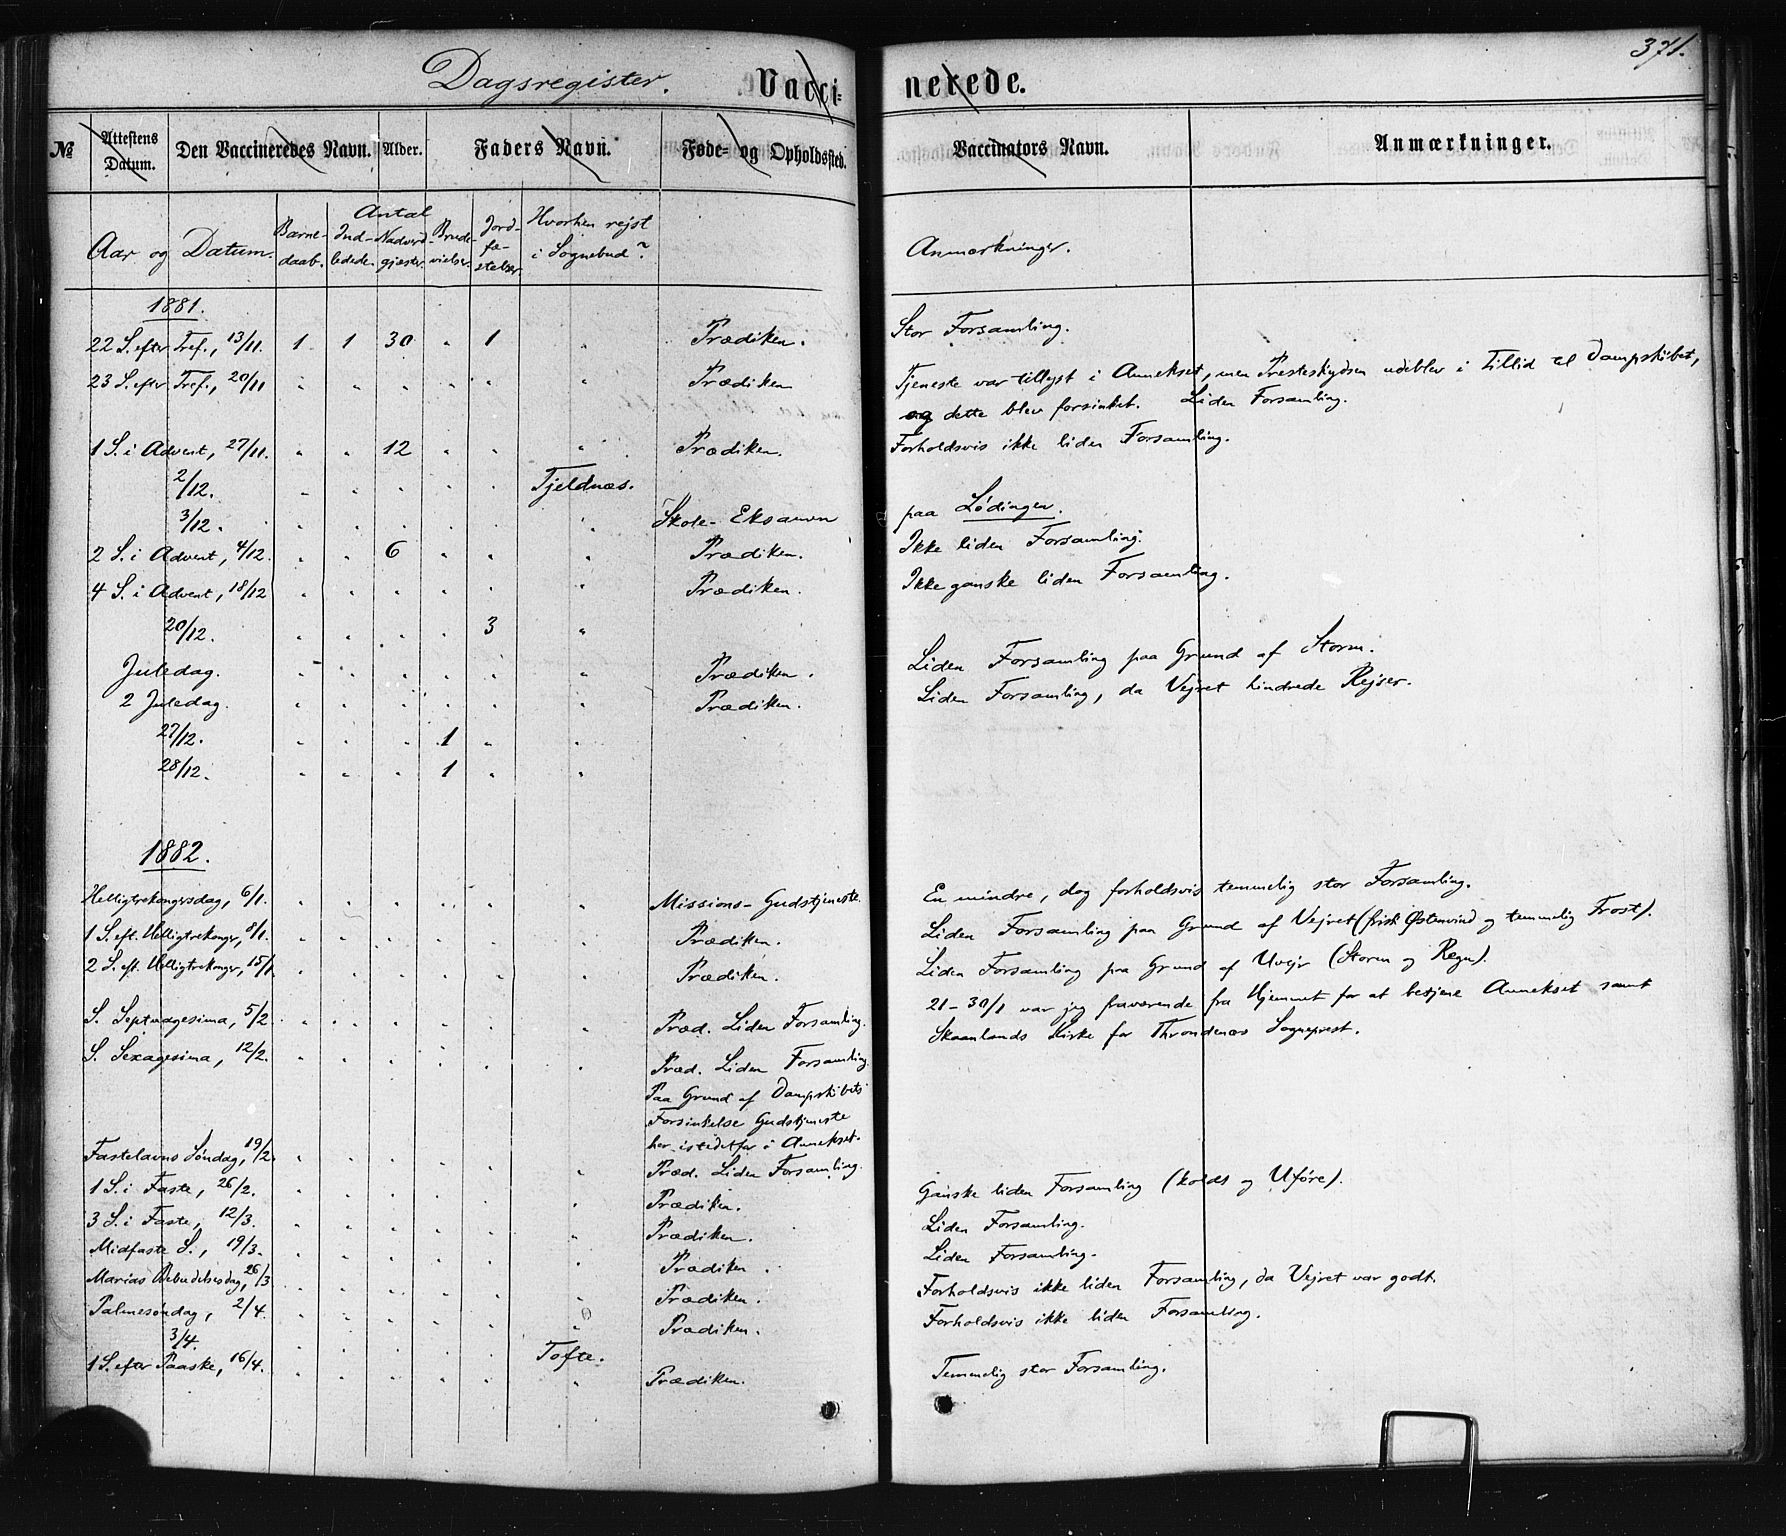 371.
Dagsregister. Vacci-
nerede.
No Attestens Datum. Den Vaccineredes Navn. Alder. Faders Navn. Føde- og Opholdssted.
Vaccinators Navn. Anmærkninger.
Antal
Aar og Datum. Barne-daab. Ind-ledede. Nadverd-gjæster. Brude-vielser. Jord-fæ-stelser. Hvorhen rejst i Sognebud? Anmærkninger.
1881.
22 S. efter Tref., 13/11. 1 1 30 " 1 " Prædiken. Stor Forsamling.
23 S. efter Tref., 20/11 " " " " " " Prædiken Tjeneste var tillyst i Annekset, men Presteskydsen udeblev i Tillid til Dampskibet,
og dette blev forsinket. Liden Forsamling.
1 S. i Advent, 27/11. " " 12 " " " Prædiken. Forholdsvis ikke liden Forsamling.
2/12. " " " " " Tjeldnæs.
3/12. " " " " " " Skole-Eksamen paa Lødingen.
2 S. i Advent, 4/12. " " 6 " " " Prædiken. Ikke liden Forsamling.
4 S. i Advent, 18/12 " " " " " " Prædiken. Ikke ganske liden Forsamling.
20/12. " " " " 3 "
Juledag. " " " " " " Prædiken. Liden Forsamling paa Grund af Storm.
2 Juledag. " " " " " " Prædiken. Liden Forsamling, da Vejret hindrede Rejser.
27/12. " " " 1 " "
28/12. " " " 1 " "
1882.
Helligtrekongersdag, 6/1. " " " " " " Missions-Gudstjeneste. En mindre, dog forholdsvis temmelig stor Forsamling.
1 S. eft. Helligtrekonger, 8/1. " " " " " " Prædiken. Liden Forsamling paa Grund af Vejret (frisk Østenvind og temmelig Frost).
2 S. eft. Helligtrekonger, 15/1 " " " " " " Prædiken. Liden Forsamling paa Grund af Uvejr (Storm og Regn).
21-30/1 var jeg fraværende fra Hjemmet for at betjene Annekset samt
S. Septuagesima, 5/2. " " " " " " Præd. Liden Forsamling. Skaanlands Kirke for Throndenæs Sogneprest.
S. Sexagesima, 12/2. " " " " " " Præd. Liden Forsamling
Paa Grund af Dampskibets
Forsinkelse Gudstjeneste
her istedetfor i Annekset.
Fastelavns Søndag, 19/2. " " " " " " Præd. Liden Forsamling.
1 S. i Faste, 26/2. " " " " " " Prædiken. Ganske liden Forsamling (koldt og Uføre).
3 S. i Faste, 12/3. " " " " " " Prædiken. Liden Forsamling.
Midfaste S., 19/3. " " " " " " Prædiken. Liden Forsamling.
Marias Bebudelsesdag, 26/3 " " " " " " Prædiken. Forholdsvis ikke liden Forsamling, da Vejret var godt.
Palmesøndag, 2/4. " " " " " " Prædiken. Forholdsvis ikke liden Forsamling.
3/4. " " " " " Tofte.
1 S. efter Paaske, 16/4. " " " " " " Prædiken. Temmelig stor Forsamling.